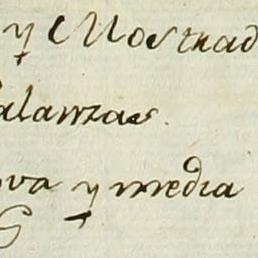 y Mostrad
alanzas.
ova y media